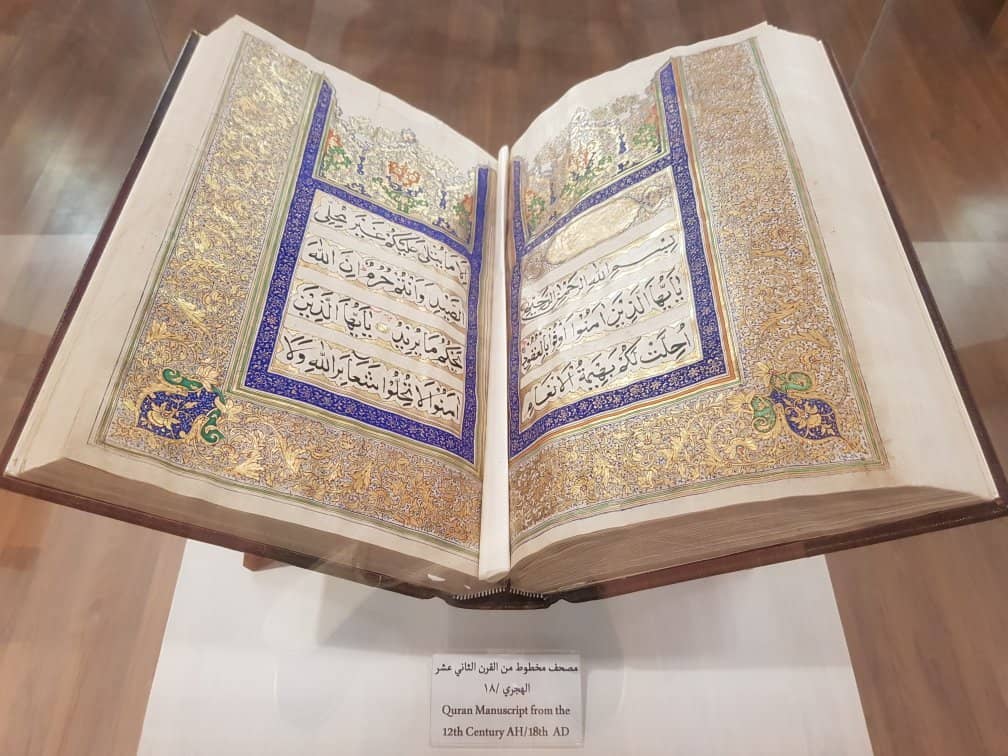 بِسْمِ اللهِ الرَّحْمٰنِ الرَّحِيمِ
يَا اَيُّهَا الَّذِينَ اٰمَنُوا اَوْفُوا بِالْعُقُودِ
اُحِلَّتْ لَكُمْ بَهِيمَةُ الْاَنْعَامِ
اِلَّا مَا يُتْلٰى عَلَيْكُمْ غَيْرَ مُحِلِّى
الصَّيْدِ وَاَنْتُمْ حُرُمٌ اِنَّ اللهَ
يَحْكُمُ مَا يُرِيدُ يَا اَيُّهَا الَّذِينَ
اٰمَنُوا لَا تُحِلُّوا شَعَائِرَ اللهِ وَلَا
مصحف مخطوط من القرن الثاني عشر
الهجري /١٨
Quran Manuscript from the
12th Century AH/18th AD